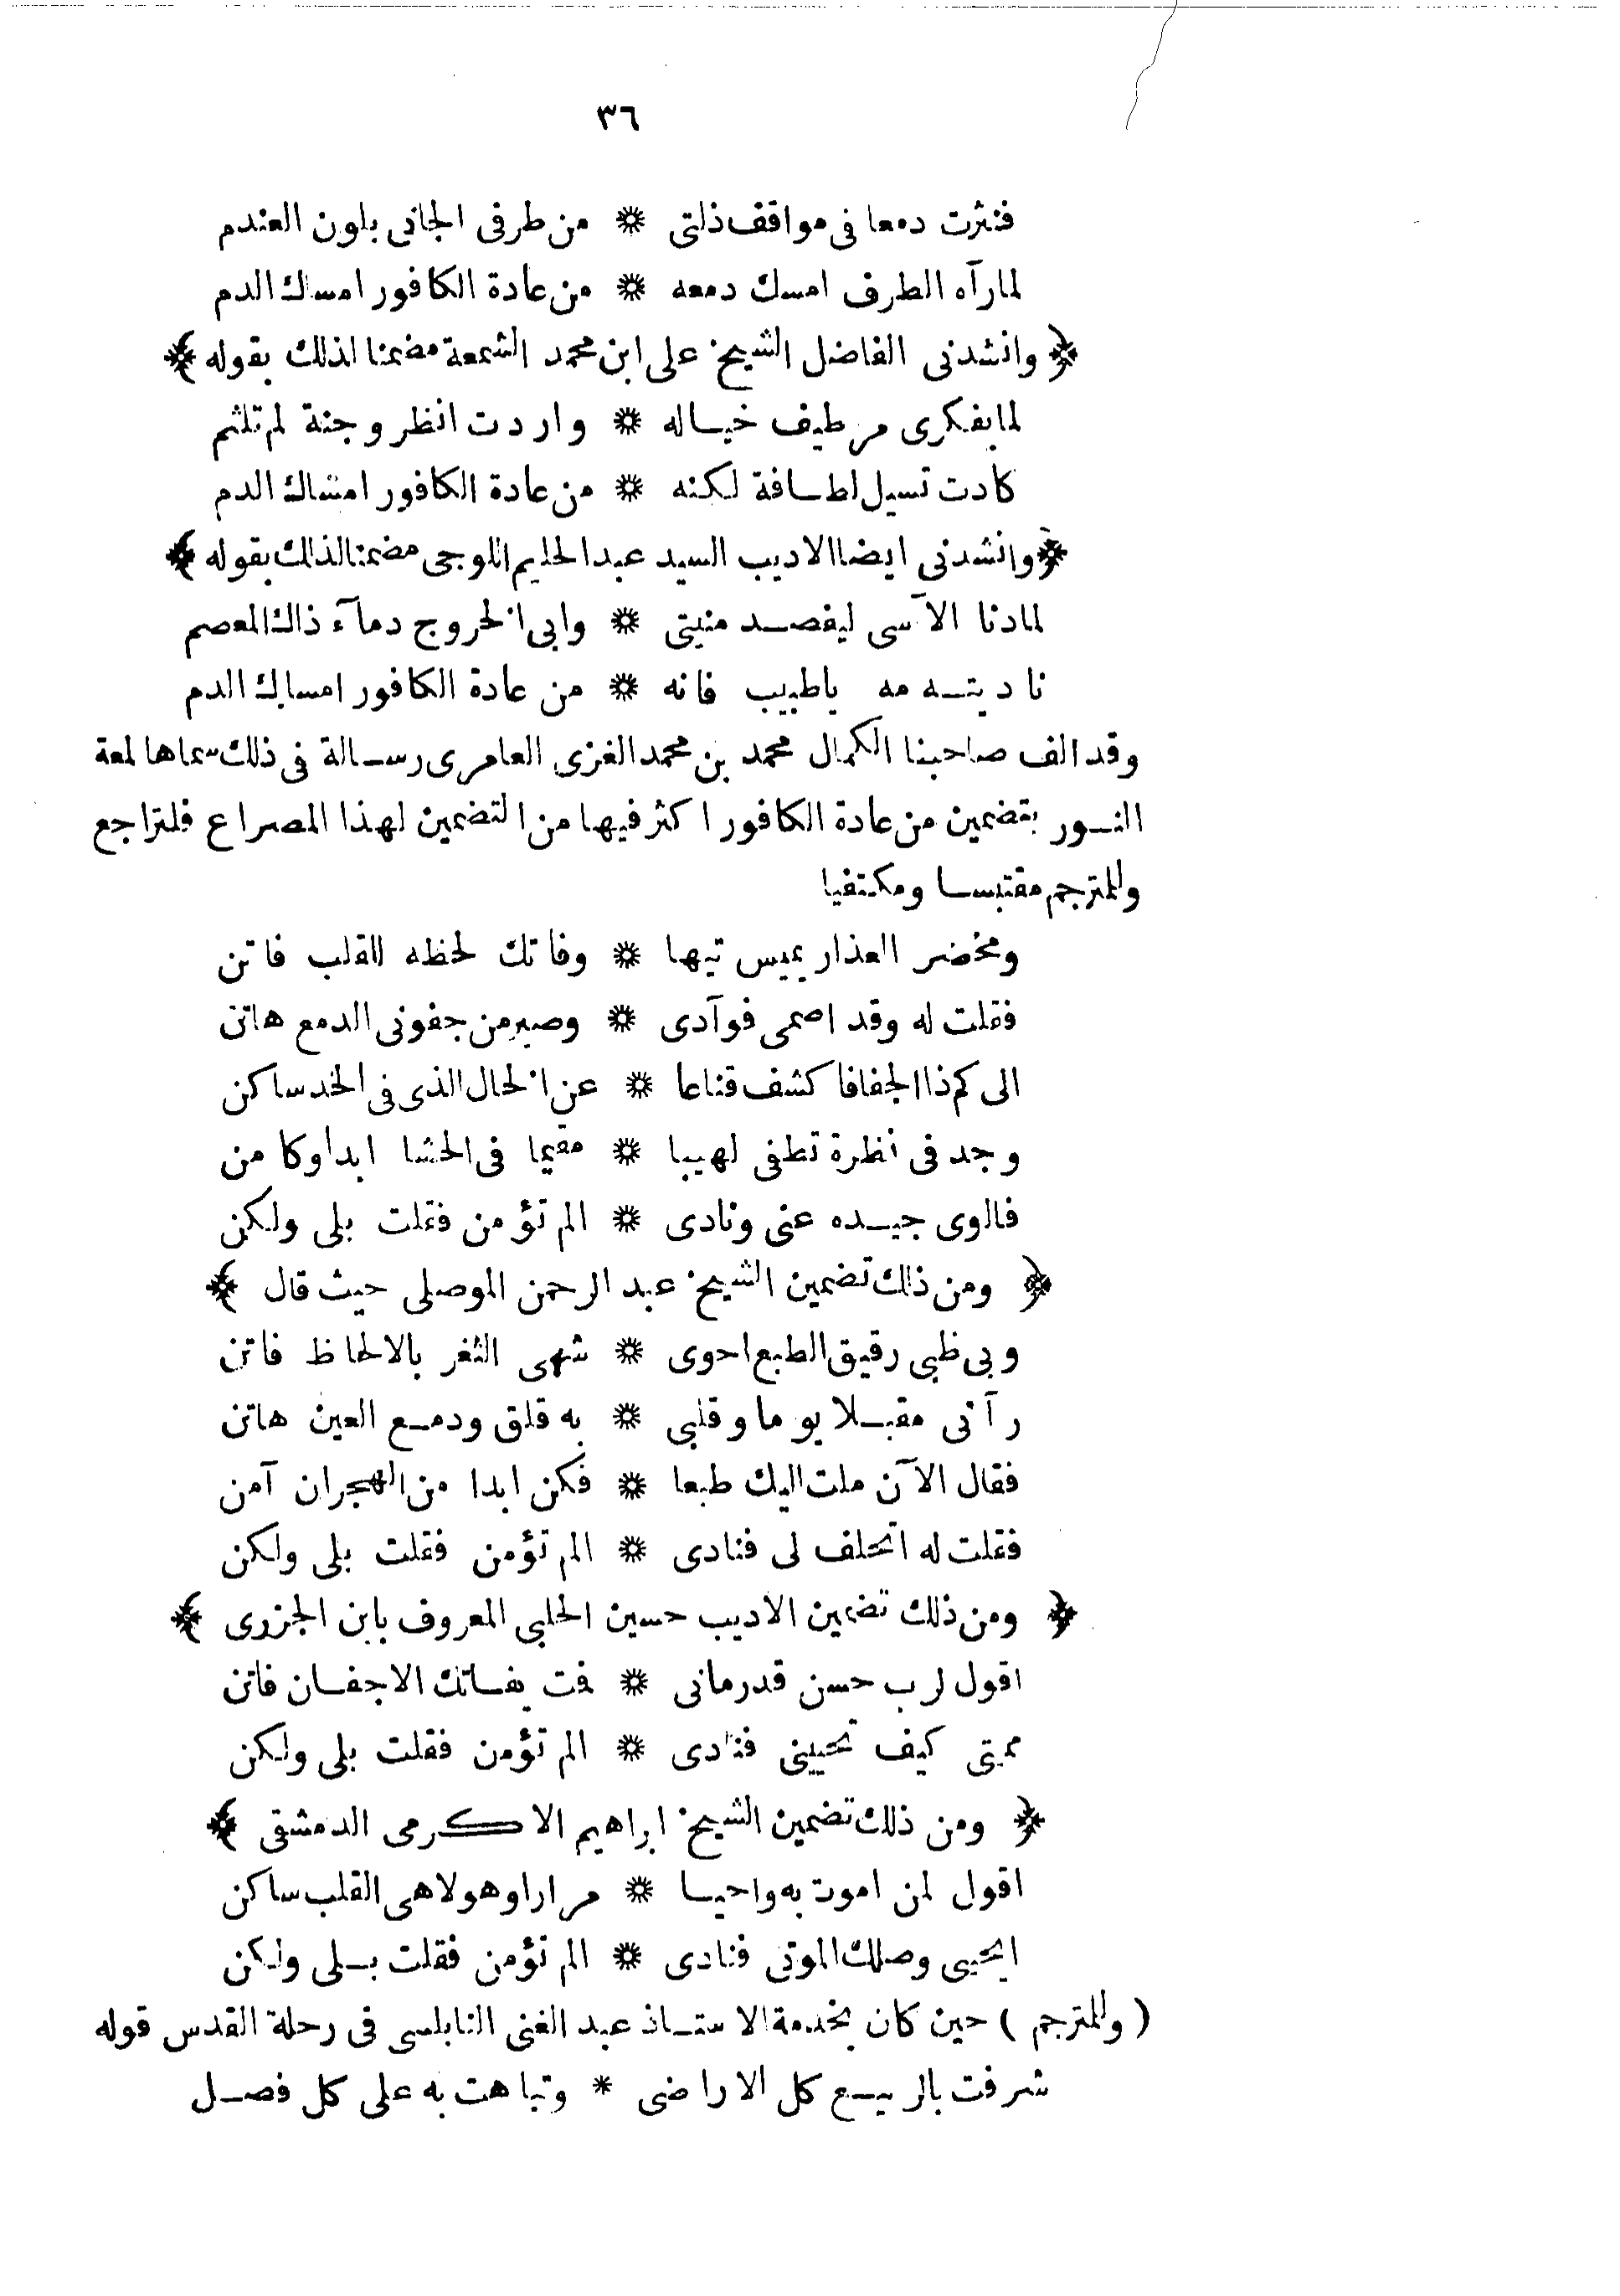 ٣٦
فنثرت دمعا فى مواقف ذلتى ❊ من طرفى الجانى بلون العندم
لما رآه الطرف امسك دمعه ❊ من عادة الكافور امساك الدم
﴿ وانشدنى الفاضل الشيخ على ابن محمد الشمعة مضمنا لذلك بقوله ﴾
لما بفكرى مر طيف خياله ❊ واردت انظر وجنة لم تلثم
كادت تسيل لطافة لكنه ❊ من عادة الكافور امساك الدم
﴿ وانشدنى ايضا الاديب السيد عبد الحليم اللوجى مضمنا لذلك بقوله ﴾
لما دنا الآسى ليفصد منيتى ❊ وابى الخروج دمآء ذاك المعصم
ناديته مه ياطبيب فانه ❊ من عادة الكافور امساك الدم
وقد الف صاحبنا الكمال محمد بن محمد الغزى العامرى رسالة فى ذلك سماها لمعة
النور بتضمين من عادة الكافور اكثر فيها من التضمين لهذا المصراع فلتراجع
وللمترجم مقتبسا ومكتفيا
ومخضر العذار يميس تيها ❊ وفاتك لحظه للقلب فاتن
فقلت له وقد اصمى فوآدى ❊ وصير من جفونى الدمع هاتن
الى كم ذا الجفا فاكشف قناعا ❊ عن الخال الذى فى الخد ساكن
وجد فى نظرة تطفى لهيبا ❊ مقيما فى الحشا ابدا وكامن
فالوى جيده عنى ونادى ❊ الم تؤمن فقلت بلى ولكن
﴿ ومن ذلك تضمين الشيخ عبد الرحمن الموصلى حيث قال ﴾
وبى ظبى رقيق الطبع احوى ❊ شهى الثغر بالالحاظ فاتن
رآنى مقبلا يوما وقلبى ❊ به قلق ودمع العين هاتن
فقال الآن ملت اليك طبعا ❊ فكن ابدا من الهجران آمن
فقلت له اتحلف لى فنادى ❊ الم تؤمن فقلت بلى ولكن
﴿ ومن ذلك تضمين الاديب حسين الحلبى المعروف بابن الجزرى ﴾
اقول لرب حسن قد رمانى ❊ فت بفاتك الاجفان فاتن
مميتى كيف تحيينى فنادى ❊ الم تؤمن فقلت بلى ولكن
﴿ ومن ذلك تضمين الشيخ ابراهيم الاكرمى الدمشقى ﴾
اقول لمن اموت به واحيا ❊ مرارا وهو لاهى القلب ساكن
ايحيى وصلك الموتى فنادى ❊ الم تؤمن فقلت بلى ولكن
( وللمترجم ) حين كان بخدمة الاستاذ عبد الغنى النابلسى فى رحلة القدس قوله
شرفت بالربيع كل الاراضى * وتباهت به على كل فصل